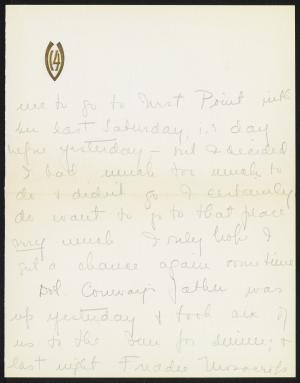 me to go to West Point with
her last Saturday, i.e. day
before yesterday – but I decided
I had much too much to
do & didn't go. I certainly
do want to go to that place
very much & only hope I
get a chance again sometime
Dot Conway's father was
up yesterday & took six of
us to the Inn for dinner, &
last night Freddie